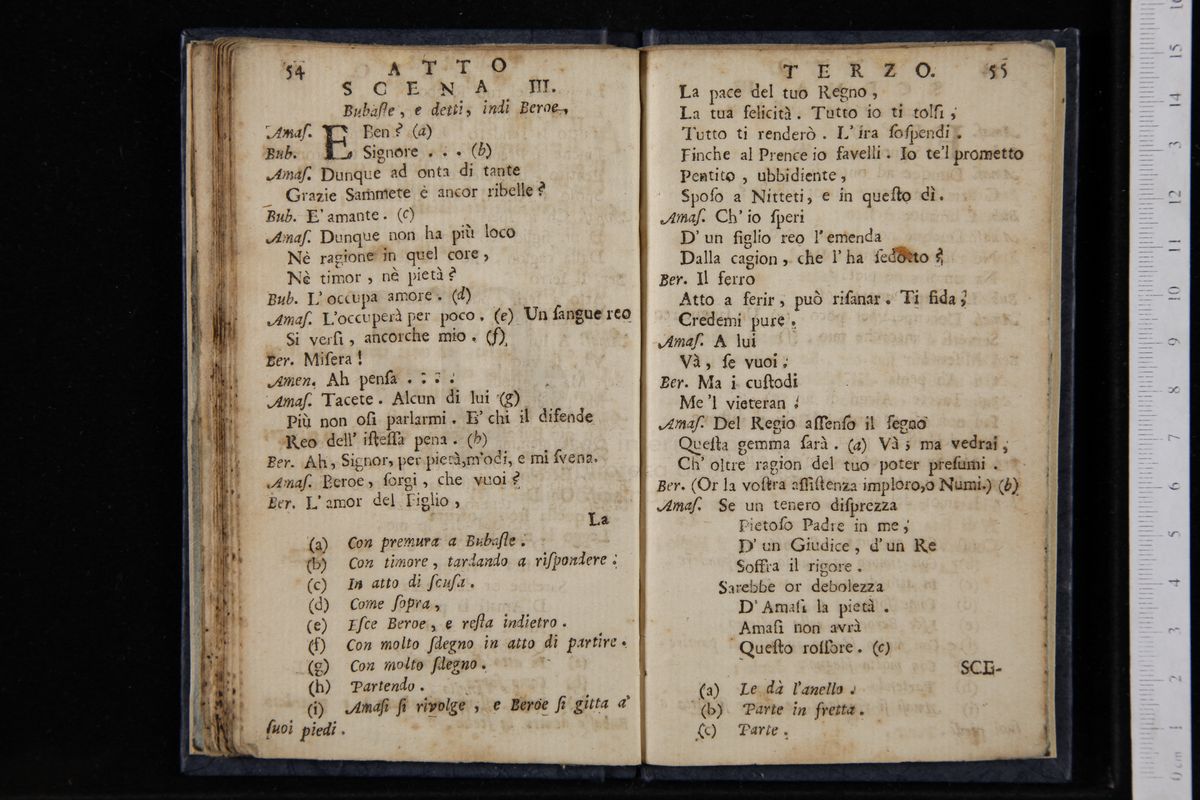 54 ATTO
SCENA III.
Bubaſte, e detti, indi Beroe,
Amaſ. E Ben? (a)
Bub. Signore . . . (b)
Amaſ. Dunque ad onta di tante
Grazie Sammete è ancor ribelle?
Bub. E' amante. (c)
Amaſ. Dunque non ha più loco
Nè ragione in quel core,
Nè timor, nè pietà?
Bub. L'occupa amore. (d)
Amaſ. L'occuperà per poco. (e) Un ſangue reo
Si verſi, ancorche mio. (f)
Ber. Miſera!
Amen. Ah penſa . . . .
Amaſ. Tacete. Alcun di lui (g)
Più non oſi parlarmi. E' chi il difende
Reo dell' iſteſſa pena. (h)
Ber. Ah, Signor, per pietà, m'odi, e mi ſvena.
Amaſ. Beroe, ſorgi, che vuoi?
Ber. L'amor del Figlio,
La
(a) Con premura a Bubaſte.
(b) Con timore, tardando a riſpondere.
(c) In atto di ſcuſa.
(d) Come ſopra,
(e) Eſce Beroe, e reſta indietro.
(f) Con molto ſdegno in atto di partire.
(g) Con molto ſdegno.
(h) Partendo.
(i) Amaſi ſi rivolge, e Beroe ſi gitta a'
ſuoi piedi.
TERZO. 55
La pace del tuo Regno,
La tua felicità. Tutto io ti tolſi;
Tutto ti renderò. L'ira ſoſpendi.
Finche al Prence io favelli. Io te'l prometto
Pentito, ubbidiente,
Spoſo a Nitteti, e in queſto dì.
Amaſ. Ch'io ſperi
D'un figlio reo l'emenda
Dalla cagion, che l'ha ſedotto?
Ber. Il ferro
Atto a ferir, può riſanar. Ti fida;
Credemi pure.
Amaſ. A lui
Và, ſe vuoi;
Ber. Ma i cuſtodi
Me'l vieteran.
Amaſ. Del Regio aſſenſo il ſegno
Queſta gemma ſarà. (a) Và; ma vedrai;
Ch'oltre ragion del tuo poter preſumi.
Ber. (Or la voſtra aſſiſtenza imploro, o Numi.) (b)
Amaſ. Se un tenero diſprezza
Pietoſo Padre in me;
D'un Giudice, d'un Re
Soffra il rigore.
Sarebbe or debolezza
D'Amaſi la pietà.
Amaſi non avrà
Queſto roſſore. (c)
SCE-
(a) Le dà l'anello.
(b) Parte in fretta.
(c) Parte.